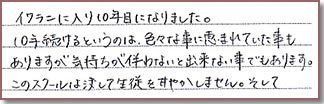 イクラニに入り10年目になりました。
10年続けるというのは、色々な事に恵まれていた事も
ありますが気持ちが伴わないと出来ない事でもあります。
このスクールは決して生徒を甘やかしません。そして